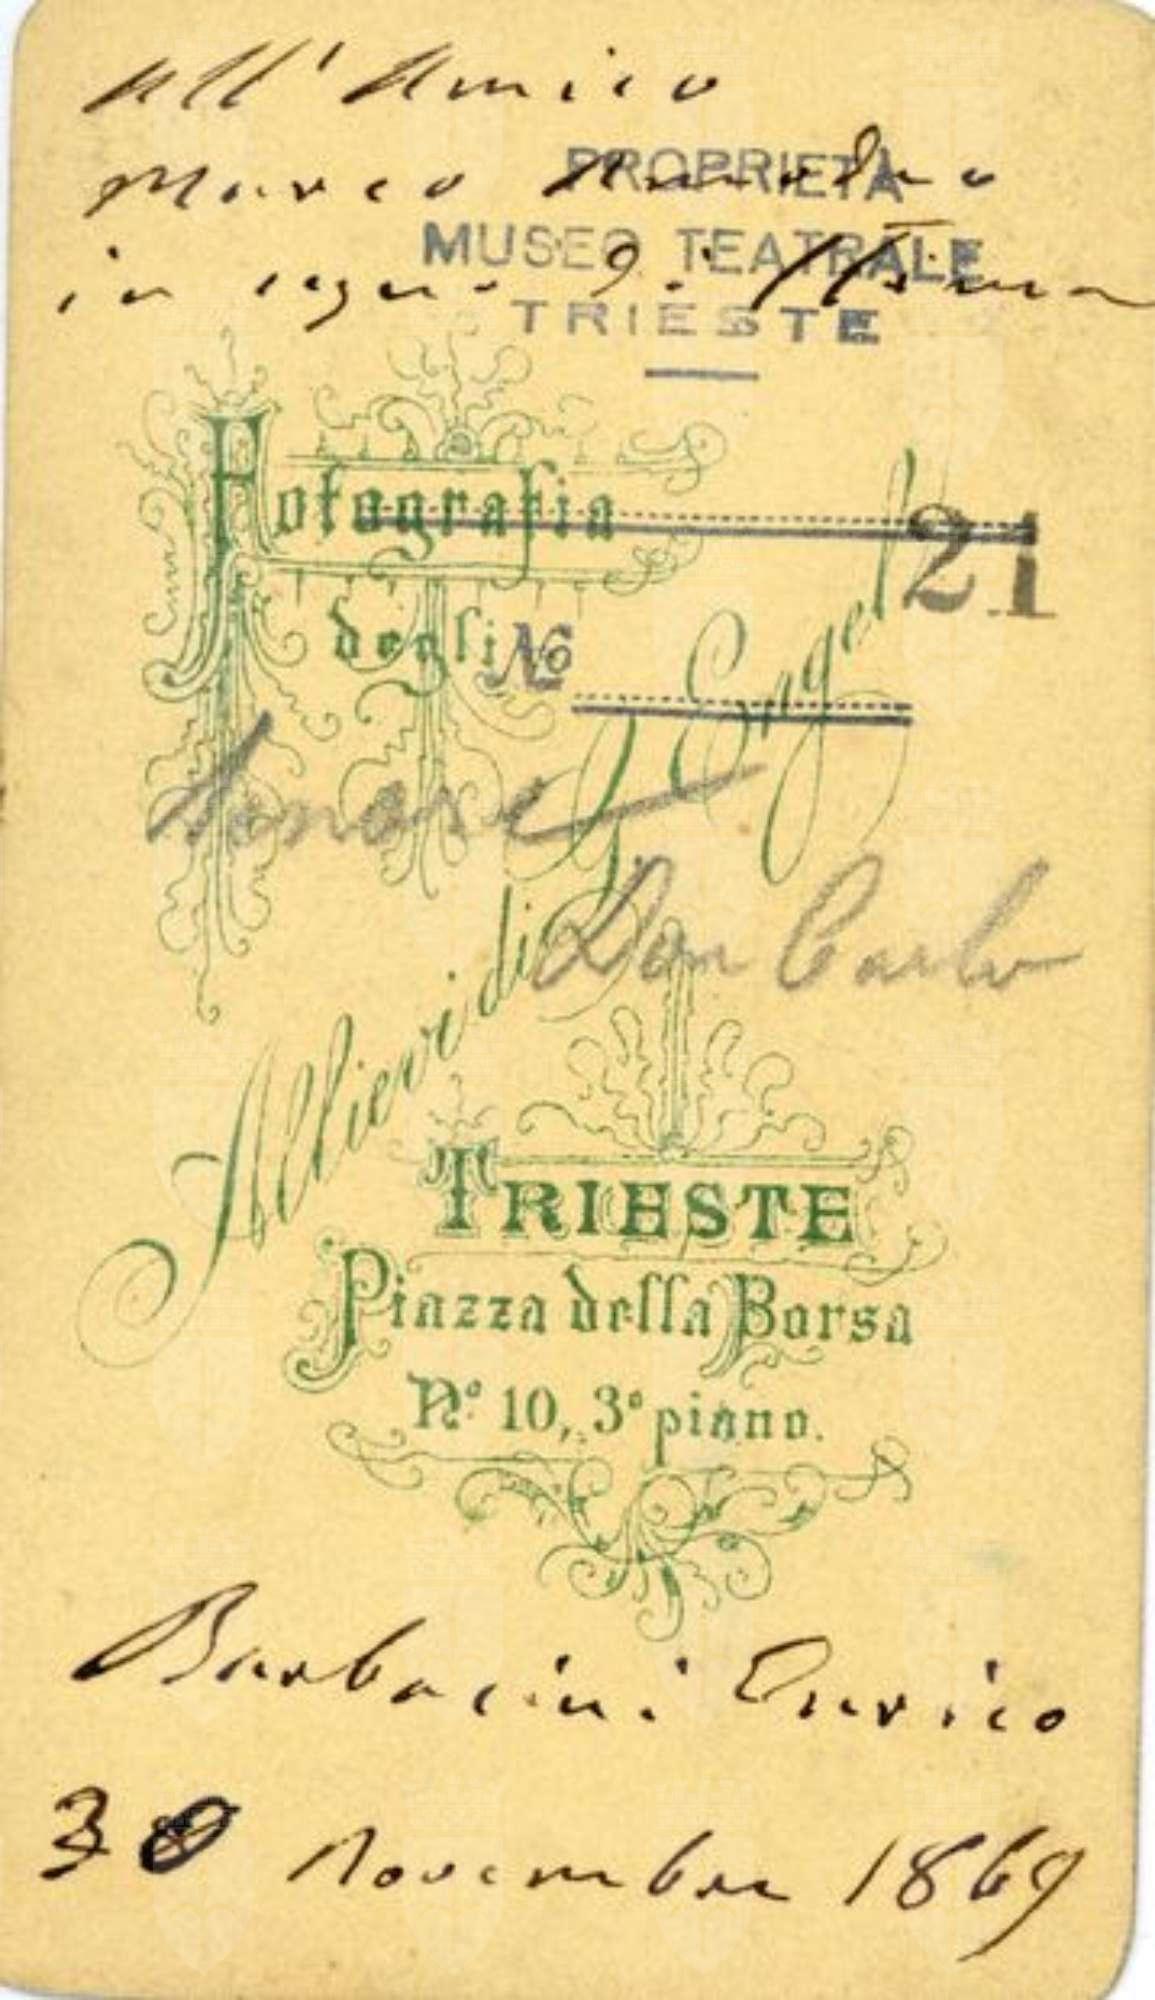 all'Amico
Marco
in segno di stima
PROPRIETÀ
MUSEO TEATRALE
TRIESTE
Fotografia
degli
Allievi di G. Engel
No
21
tenore
Don Carlo
TRIESTE
Piazza della Borsa
N.º 10, 3º piano.
Barbacini Enrico
30 Novembre 1869